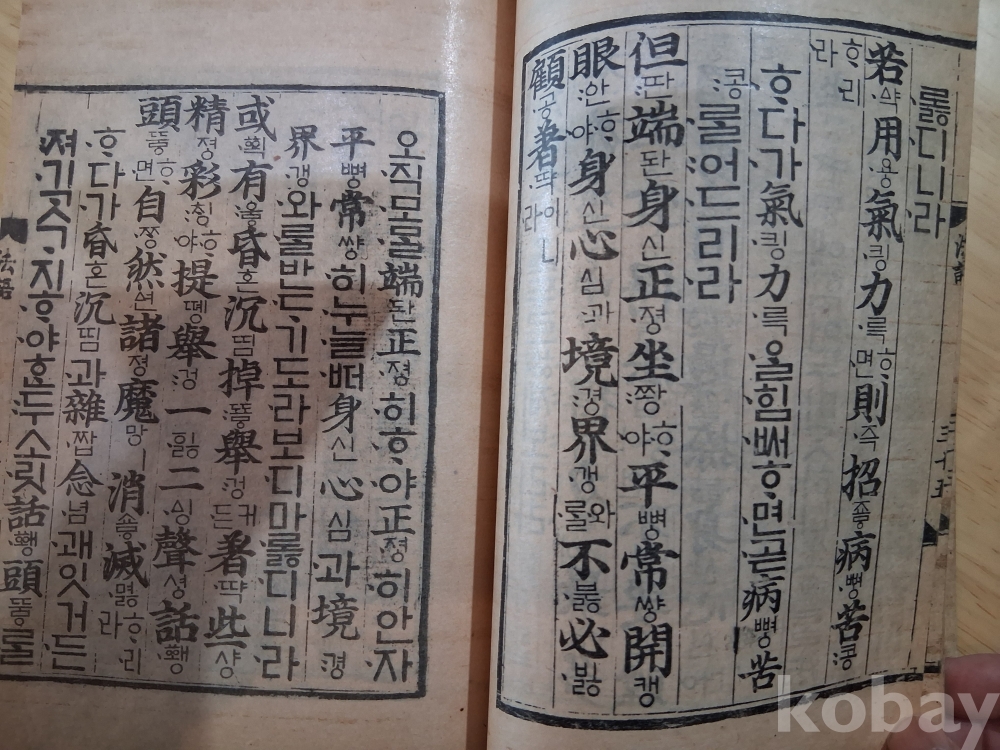 롫디니라
若약用용氣킝力륵ᄒᆞ면則즉招죻病뼝苦콩ᄒᆞ리라
ᄒᆞ다가氣킝力륵을힘ᄡᅥᄒᆞ면곧病뼝苦
콩ᄅᆞᆯ어드리라
但딴端돤身신正졍坐쫭ᄒᆞ야平뼝常썅開캥
眼안ᄒᆞ야身신心심과境경界갱와ᄅᆞᆯ不붏必빓
顧공著땩이니라
오직모ᄆᆞᆯ端돤正졍히ᄒᆞ야正졍히안자
平뼝常썅히누늘ᄠᅥ身신心심과境경
界갱와ᄅᆞᆯ반ᄃᆞ기도라보디마롫디니라
或획有윻昏혼沉띰掉뚛擧겅커든著땩些샹
精졍彩칭ᄒᆞ야提뗑擧겅一ᅙᅵᇙ二ᅀᅵᆼ聲셩話ᅘᅪᆼ
頭뚷ᄒᆞ면自ᄍᆞᆼ然ᅀᅧᆫ諸졍魔망ㅣ消숗滅몛ᄒᆞ리라
ᄒᆞ다가昏혼沉띰과雜짭念념괘잇거든
져기 ᄒᆞ야ᄒᆞᆫ두소릿話ᅘᅪᆼ頭뚷ᄅᆞᆯ
法語
kobay